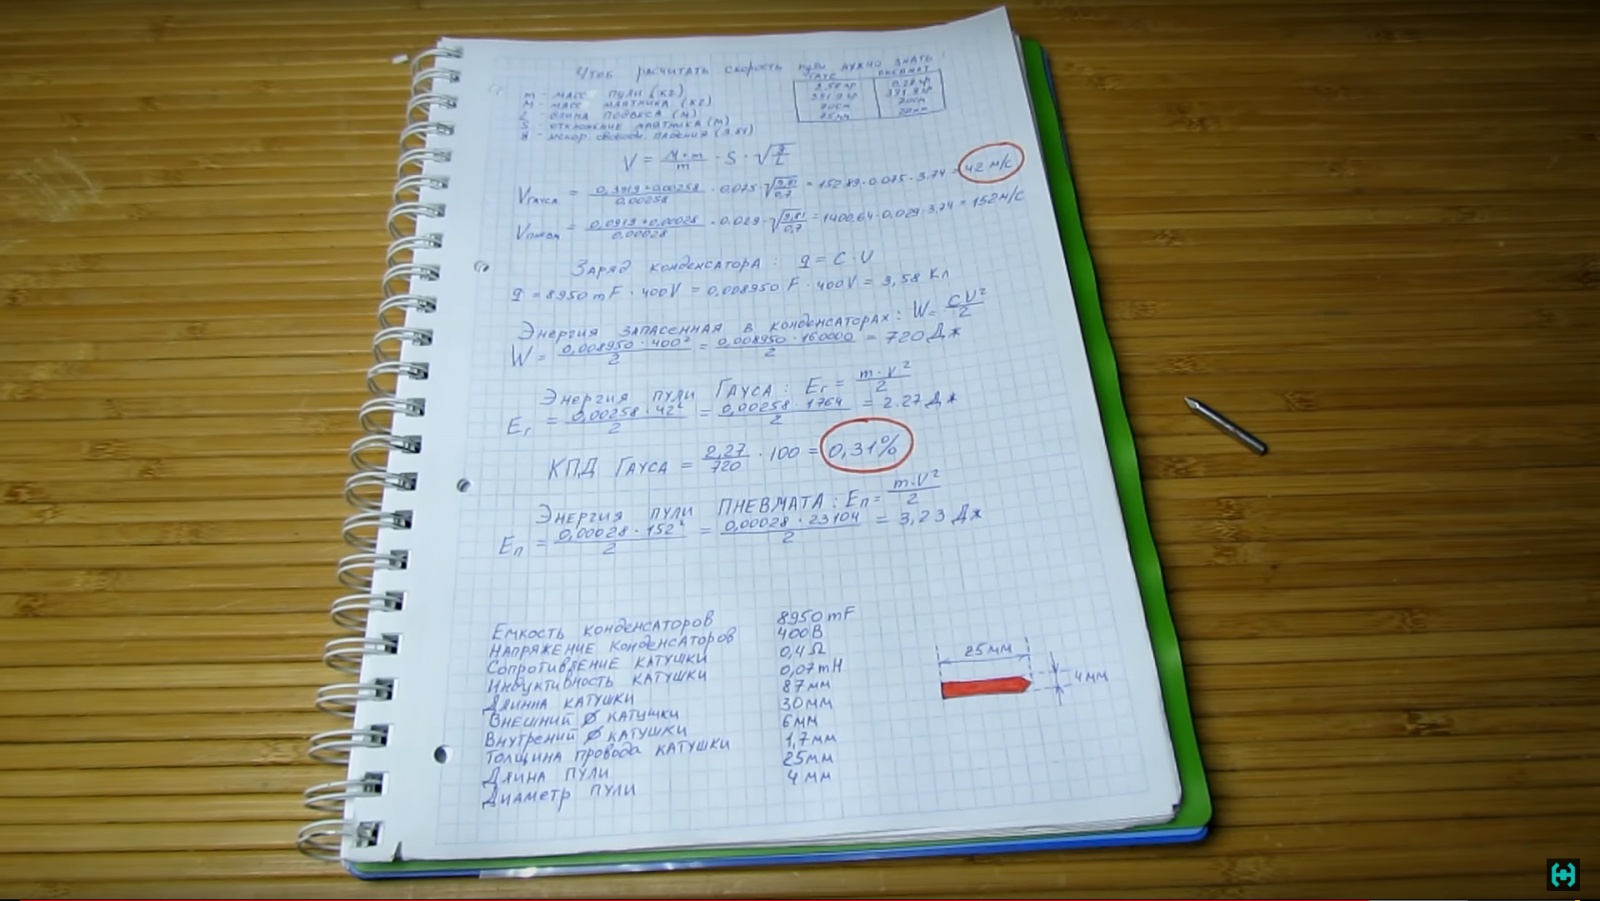 Чтоб расчитать скорость пули нужно знать!
m - масс пули (кг)
M - масс маятника (кг)
L - длина подвеса (м)
S - отклонение маятника (м)
g - ускор. свободн. падения (9.81)
Гаус Пневмат
2.58гр 0.28гр
391.9гр 391.9гр
70см 70см
75мм 29мм
V = M+m/m · S · √g/L
Vгауса = 0,3919+0.00258/0.00258 · 0.075 · √9,81/0,7 = 152.89 · 0.075 · 3.74 = 42 м/с
Vпневм = 0,0919+0,00028/0.00028 · 0.029 · √9,81/0,7 = 1400,64 · 0,029 · 3,74 = 152 м/с
Заряд конденсатора: q = C · U
q = 8950 mF · 400V = 0,008950 F · 400V = 3,58 Кл
Энергия запасенная в конденсаторах: W = CU²/2
W = 0,008950 · 400²/2 = 0,008950 · 160000/2 = 720 Дж
Энергия пули Гауса: Eг = m·v²/2
Eг = 0,00258 · 42²/2 = 0,00258 · 1764/2 = 2.27 Дж
КПД Гауса = 2,27/720 · 100 = 0,31%
Энергия пули ПНЕВМАТА: Eп = m·V²/2
Eп = 0,00028 · 152²/2 = 0,00028 · 23104/2 = 3,23 Дж
Емкость конденсаторов 8950 mF
Напряжение конденсаторов 400В
Сопротивление катушки 0,4Ω
Индуктивность катушки 0,07mH
Длинна катушки 87мм
Внешний ⌀ катушки 30мм
Внутрений ⌀ катушки 6мм
Толщина провода катушки 1,7мм
Длина пули 25мм
Диаметр пули 4мм
25мм
4мм